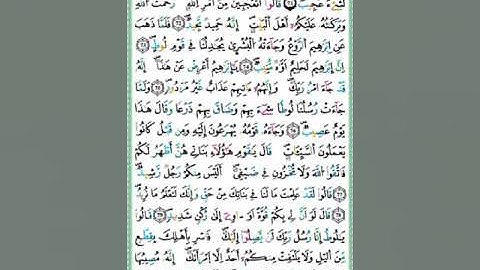 لَشَىْءٌ عَجِيبٌ قَالُوٓا۟ أَتَعْجَبِينَ مِنْ أَمْرِ ٱللَّهِ رَحْمَتُ ٱللَّهِ
وَبَرَكَٰتُهُۥ عَلَيْكُمْ أَهْلَ ٱلْبَيْتِ إِنَّهُۥ حَمِيدٌ مَّجِيدٌ فَلَمَّا ذَهَبَ
عَنْ إِبْرَٰهِيمَ ٱلرَّوْعُ وَجَآءَتْهُ ٱلْبُشْرَىٰ يُجَٰدِلُنَا فِى قَوْمِ لُوطٍ
إِنَّ إِبْرَٰهِيمَ لَحَلِيمٌ أَوَّٰهٌ مُّنِيبٌ يَٰٓإِبْرَٰهِيمُ أَعْرِضْ عَنْ هَٰذَآ إِنَّهُۥ
قَدْ جَآءَ أَمْرُ رَبِّكَ وَإِنَّهُمْ ءَاتِيهِمْ عَذَابٌ غَيْرُ مَرْدُودٍ وَلَمَّا
جَآءَتْ رُسُلُنَا لُوطًا سِىٓءَ بِهِمْ وَضَاقَ بِهِمْ ذَرْعًا وَقَالَ هَٰذَا
يَوْمٌ عَصِيبٌ وَجَآءَهُۥ قَوْمُهُۥ يُهْرَعُونَ إِلَيْهِ وَمِن قَبْلُ كَانُوا۟
يَعْمَلُونَ ٱلسَّيِّـَٔاتِ قَالَ يَٰقَوْمِ هَٰٓؤُلَآءِ بَنَاتِى هُنَّ أَطْهَرُ لَكُمْ
فَٱتَّقُوا۟ ٱللَّهَ وَلَا تُخْزُونِ فِى ضَيْفِىٓ أَلَيْسَ مِنكُمْ رَجُلٌ رَّشِيدٌ
قَالُوا۟ لَقَدْ عَلِمْتَ مَا لَنَا فِى بَنَاتِكَ مِنْ حَقٍّ وَإِنَّكَ لَتَعْلَمُ مَا نُرِيدُ
قَالَ لَوْ أَنَّ لِى بِكُمْ قُوَّةً أَوْ ءَاوِىٓ إِلَىٰ رُكْنٍ شَدِيدٍ قَالُوا۟
يَٰلُوطُ إِنَّا رُسُلُ رَبِّكَ لَن يَصِلُوٓا۟ إِلَيْكَ فَأَسْرِ بِأَهْلِكَ بِقِطْعٍ
مِّنَ ٱلَّيْلِ وَلَا يَلْتَفِتْ مِنكُمْ أَحَدٌ إِلَّا ٱمْرَأَتَكَ إِنَّهُۥ مُصِيبُهَا